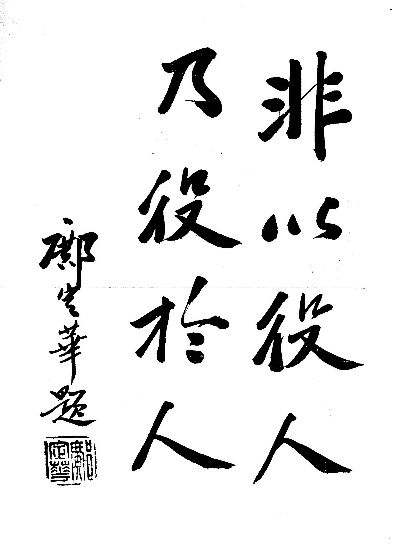 非以役人
乃役於人
鄺定華題